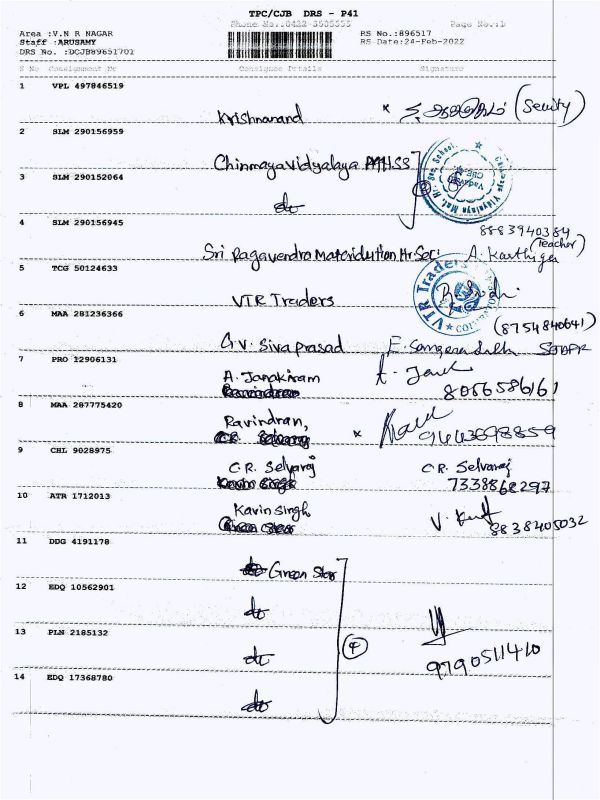 TPC/CJB DRS - P41
Phone No.:0422-3505555 Page No.:1
Area :V.N R NAGAR
Staff :ARUSAMY
DRS No. :DCJB89651701
RS No.:896517
RS Date:24-Feb-2022
S No Consignment Nr Consignee Details Signature
1 VPL 497846519
Krishnanand x (Secuity)
2 SLM 290156959
Chinmaya Vidyalaya MHSS
3 SLM 290152064
do
4 SLM 290156945
8883940384
Sri Ragavendra Matericlution Hr Sec: A. Karthiga (Teacher)
5 TCG 50124633
VTR Traders
VTR Traders
6 MAA 281236366
(8754840641)
G.V. Sivaprasad
7 PRO 12906131
A. Janakiram
8056586161
8 MAA 287775420
Ravindran,
x 9443698859
9 CHL 9028975
C.R. Selvaraj C.R. Selvaraj
7338868297
10 ATR 1712013
Kavin Singh
8838405032
11 DDG 4191178
Green Star
12 EDQ 10562901
do
13 PLN 2185132
do
4
9790511410
14 EDQ 17368780
do